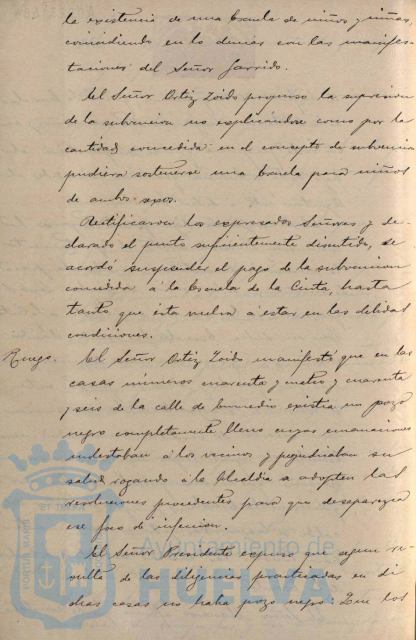 la existencia de una Escuela de niños y niñas,
coincidiendo en lo demás con las manifes-
taciones del Señor Garrido.
El Señor Ortiz Zoido propuso la supresion
de la subvencion no explicándose como por la
cantidad concedida en el concepto de subvencion
pudiera sostenerse una Escuela para niños
de ambos sexos.
Rectificaron los expresados Señores y de-
clarado el punto suficientemente discutido, se
acordó suspender el pago de la subvencion
concedida á la Escuela de la Cinta, hasta
tanto que ésta vuelva á estar en las debidas
condiciones.
Ruego. El Señor Ortiz Zoido manifestó que en las
casas números cuarenta y cuatro y cuarenta
y seis de la calle de Enmedio existia un pozo
negro completamente lleno cuyas emanaciones
molestaban á los vecinos y perjudicaban su
salud, rogando á la Alcaldia se adopten las
resoluciones procedentes para que desaparezca
ese foco de infeccion.
El Señor Presidente expuso que segun re-
sulta de las diligencias practicadas en di-
chas casas no habia pozo negro: Que los
Ayuntamiento de
HUELVA
PORTUS MARIS